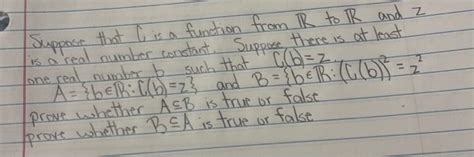 Suppose that C is a function from ℝ to ℝ and z
is a real number constant. Suppose there is at least
one real number b such that C(b)=z
A={b∈ℝ: C(b)=z} and B={b∈ℝ: (C(b))²=z²
prove whether A⊆B is true or false
prove whether B⊆A is true or false